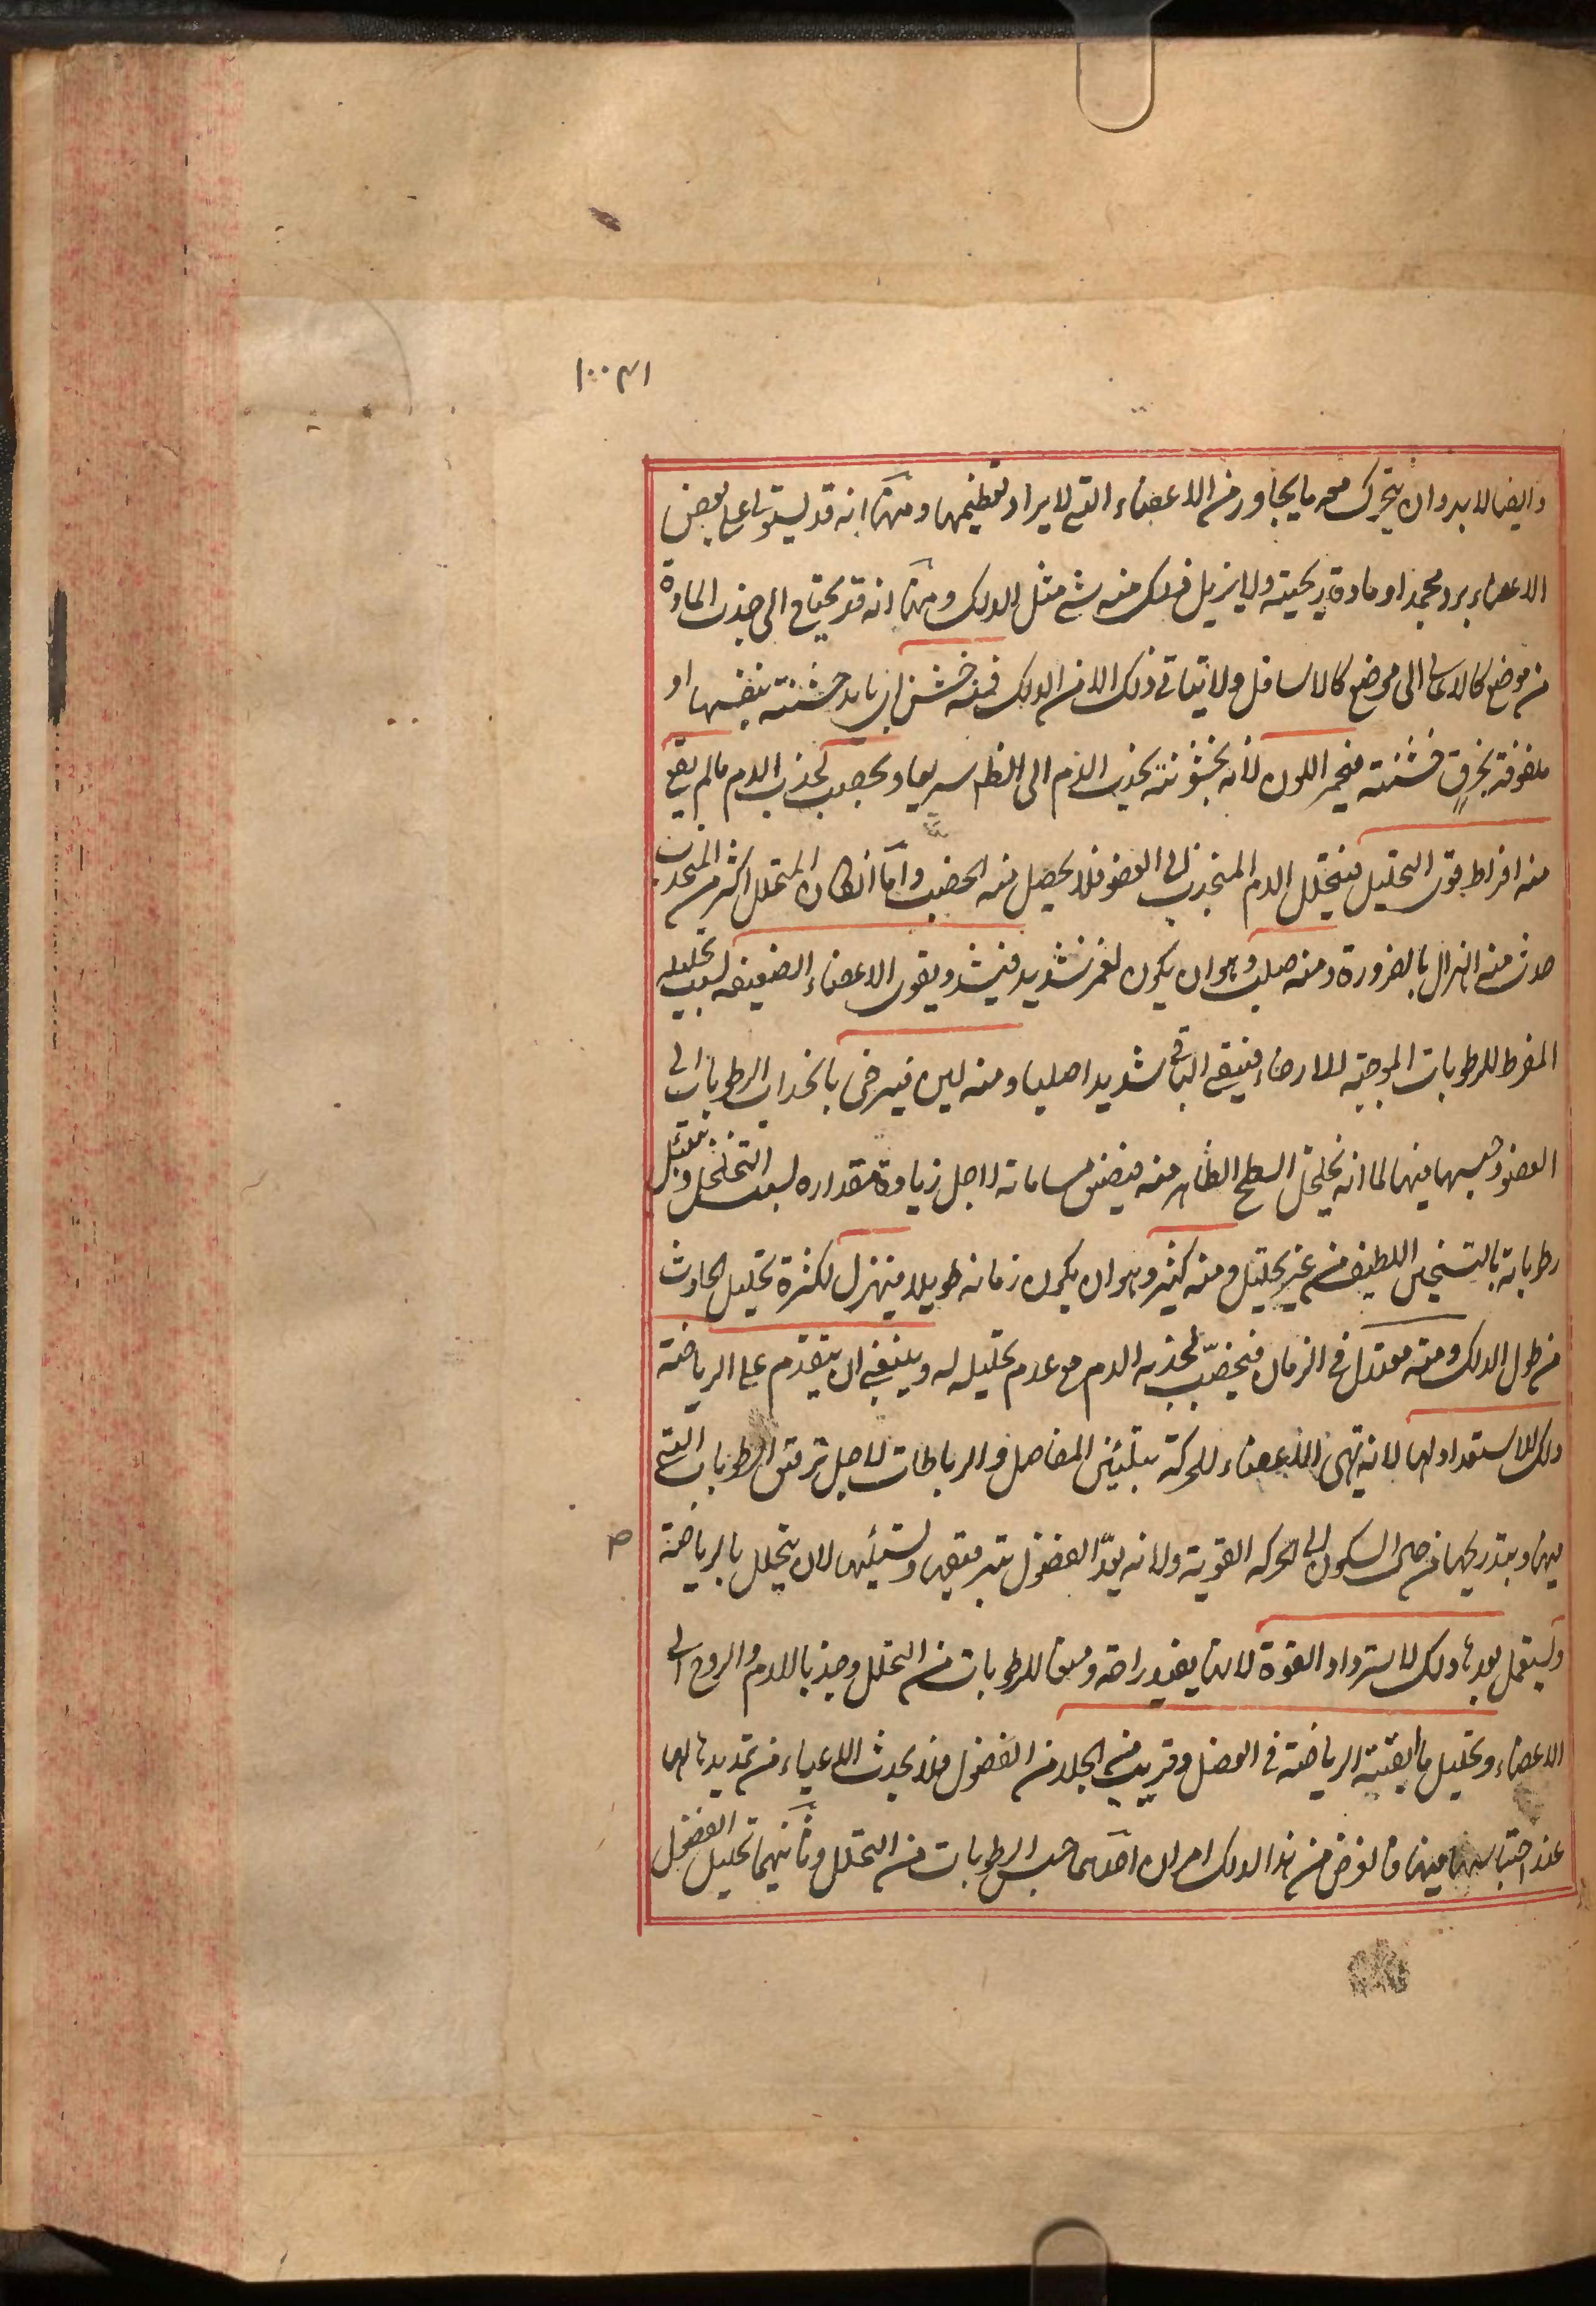 ١٠٠٣١
وايضا لابد وان يتحرك معه ما يجاوره من الاعضاء التي لا يراد تعظيمها ومنها انه قد يستولى على بعض
الاعضاء برد مجمد او مادة ريحية ولا يزيل ذلك منه شئ مثل الدلك ومنها انه قد يحتاج الى جذب المادة
من موضع كالاعالى الى موضع كالاسافل ولا يتاتى ذلك الا من الدلك فمنه خشن اى بايد خشنة بنفسها او
ملفوفة بخرق خشنة فيحمر اللون لانه بخشونته يجذب الدم الى الظاهر سريعا ويخصب لجذب الدم مالم يقع
منه افراط فوق التحليل فيتحلل الدم المنجذب الى العضو فلا يحصل منه الخصب واما ان كان المتحلل اكثر من المنجذب
حدث منه الهزال بالضرورة ومنه صلب وهو ان يكون لغمز شديد فيشد ويقوى الاعضاء الضعيفه لسبب تحليله
المفرط للرطوبات الموجبة للارخاء فيبقى الباقى شديدا صلبا ومنه لين فيرخى بانجذاب الرطوبات الى
العضو وحبسها فيها لما انه يخلخل السطح الظاهر منه فيضيق مساماته لاجل زيادة مقداره بسبب التخلخل وتمتلئ
رطوباته بالتسخين اللطيف من غير تحليل ومنه كثير وهو ان يكون زمانه طويلا فيهزل لكثرة تحليل الحادث
من طول الدلك ومنه معتدل فى الزمان فيخصب لجذبه الدم مع عدم تحليله له وينبغى ان يتقدم على الرياضة
دلك للاستعداد لها لانه يهيئ الاعضاء للحركة بتليين المفاصل والرباطات لاجل ترقيق الرطوبات التى
فيها وبتدريجها من حال السكون الى الحركه القوية ولانه يعد الفضول بترقيقها وتسييلها لان يتحلل بالرياضة
ويستعمل بعدها دلك لاسترداد القوة لانه يفيد راحة ومنعا للرطوبات من التحلل وجذبا للدم والروح الى
الاعضاء وتحليل ما ابقته الرياضة فى العضل وقريب من الجلد من الفضول فلا يحدث الاعياء من تمديدها لها
عند احتباسها فيها فالغرض من هذا الدلك امران احدهما حبس الرطوبات من التحلل وثانيهما تحليل الفضول